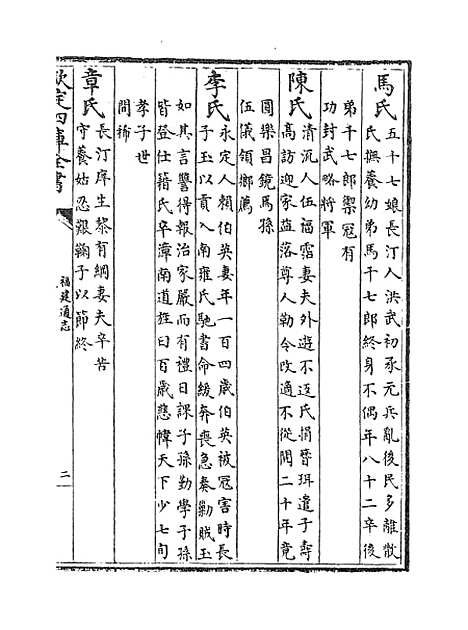 馬氏
五十七娘長汀人洪武初承元兵亂後民多離散
氏撫養幼弟馬千七郎終身不偶年八十二卒後
弟千七郎禦冦有
功封武略将軍
陳氏
清流人伍福霑妻夫外遊不返氏捐簪珥遣子壽
髙訪迎家益落尊人勒令改適不從閲二十年竟
圓樂昌鏡焉孫
伍儀領鄉薦
李氏
永定人賴伯英妻年一百四歲伯英被冦害時長
子玉以貢入南雍氏馳書命緩奔喪急奏勦賊玉
如其言讐得報治家嚴而有禮日課子孫勤學子孫
皆登仕籍氏卒漳南道旌曰百歲慈幃天下少七旬
孝子世
間稀
章氏
長汀庠生黎有綱妻夫卒苦
守養姑忍艱鞠子以節終
欽定四庫全書
福建通志
二